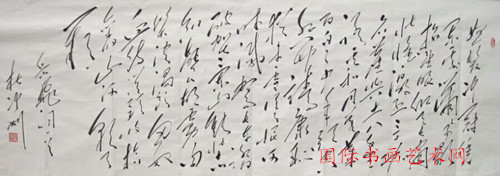 怒发冲冠凭
阑处潇潇雨歇
抬望眼仰天长啸
壮怀激烈三十
功名尘与土八千
里路云和月莫等闲
白了少年头空悲切
靖康耻
犹未雪臣子恨何
时灭驾长车踏
破贺兰山缺壮志
饥餐胡虏肉
笑谈渴饮匈奴
血待从头收拾
旧山河朝天
阙
岳飞词一首
国际书画艺术网